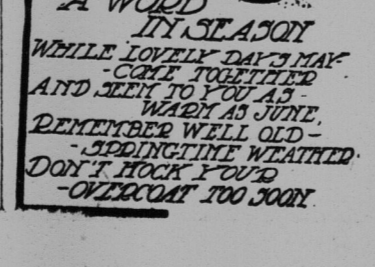 A WORD
IN SEASON
WHILE LOVELY DAYS MAY-
-COME TOGETHER
AND SEEM TO YOU AS -
WARM AS JUNE,
REMEMBER WELL OLD-
-SPRINGTIME WEATHER-
DON'T HOCK YOUR
-OVERCOAT TOO SOON.